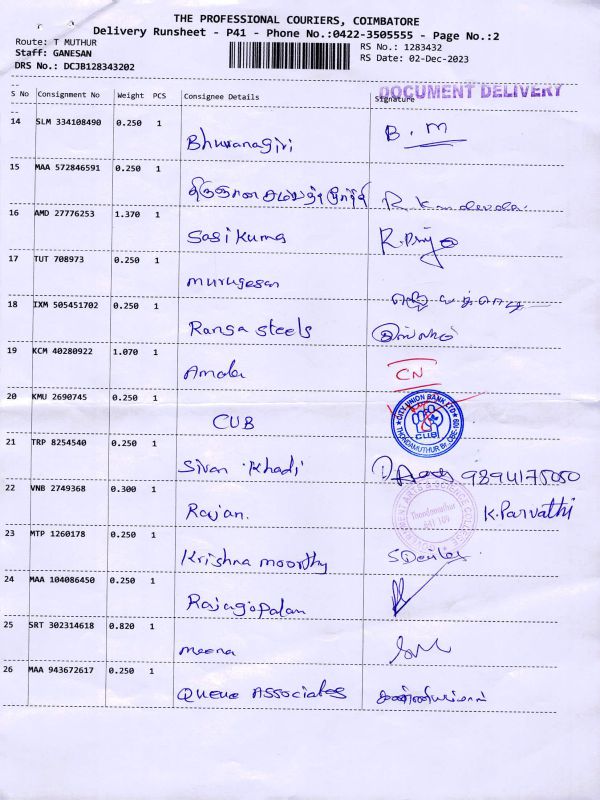 THE PROFESSIONAL COURIERS, COIMBATORE
Delivery Runsheet - P41 - Phone No.:0422-3505555 - Page No.:2
Route: T MUTHUR
Staff: GANESAN
DRS No.: DCJB128343202
RS No.: 1283432
RS Date: 02-Dec-2023
DOCUMENT DELIVERY
S No Consignment No Weight PCS Consignee Details Signature
14 SLM 334108490 0.250 1
Bhuvanagiri B.M
15 MAA 572846591 0.250 1
16 AMD 27776253 1.370 1
Sasikuma R.Priya
17 TUT 708973 0.250 1
murugesan
18 IXM 505451702 0.250 1
Ransa steels
19 KCM 40280922 1.070 1
Amala CN
20 KMU 2690745 0.250 1
CUB
CITY UNION BANK LTD
CUB
THONDAMUTHUR
21 TRP 8254540 0.250 1
Sivan 'Khadi' 9894175050
22 VNB 2749368 0.300 1
Rajan. K.Parvathi
ARTS & SCIENCE COLLEGE
Thondamuthur
641 109
23 MTP 1260178 0.250 1
Krishna moorthy
24 MAA 104086450 0.250 1
Rajagopalan
25 SRT 302314618 0.820 1
meena
26 MAA 943672617 0.250 1
Queue Associates